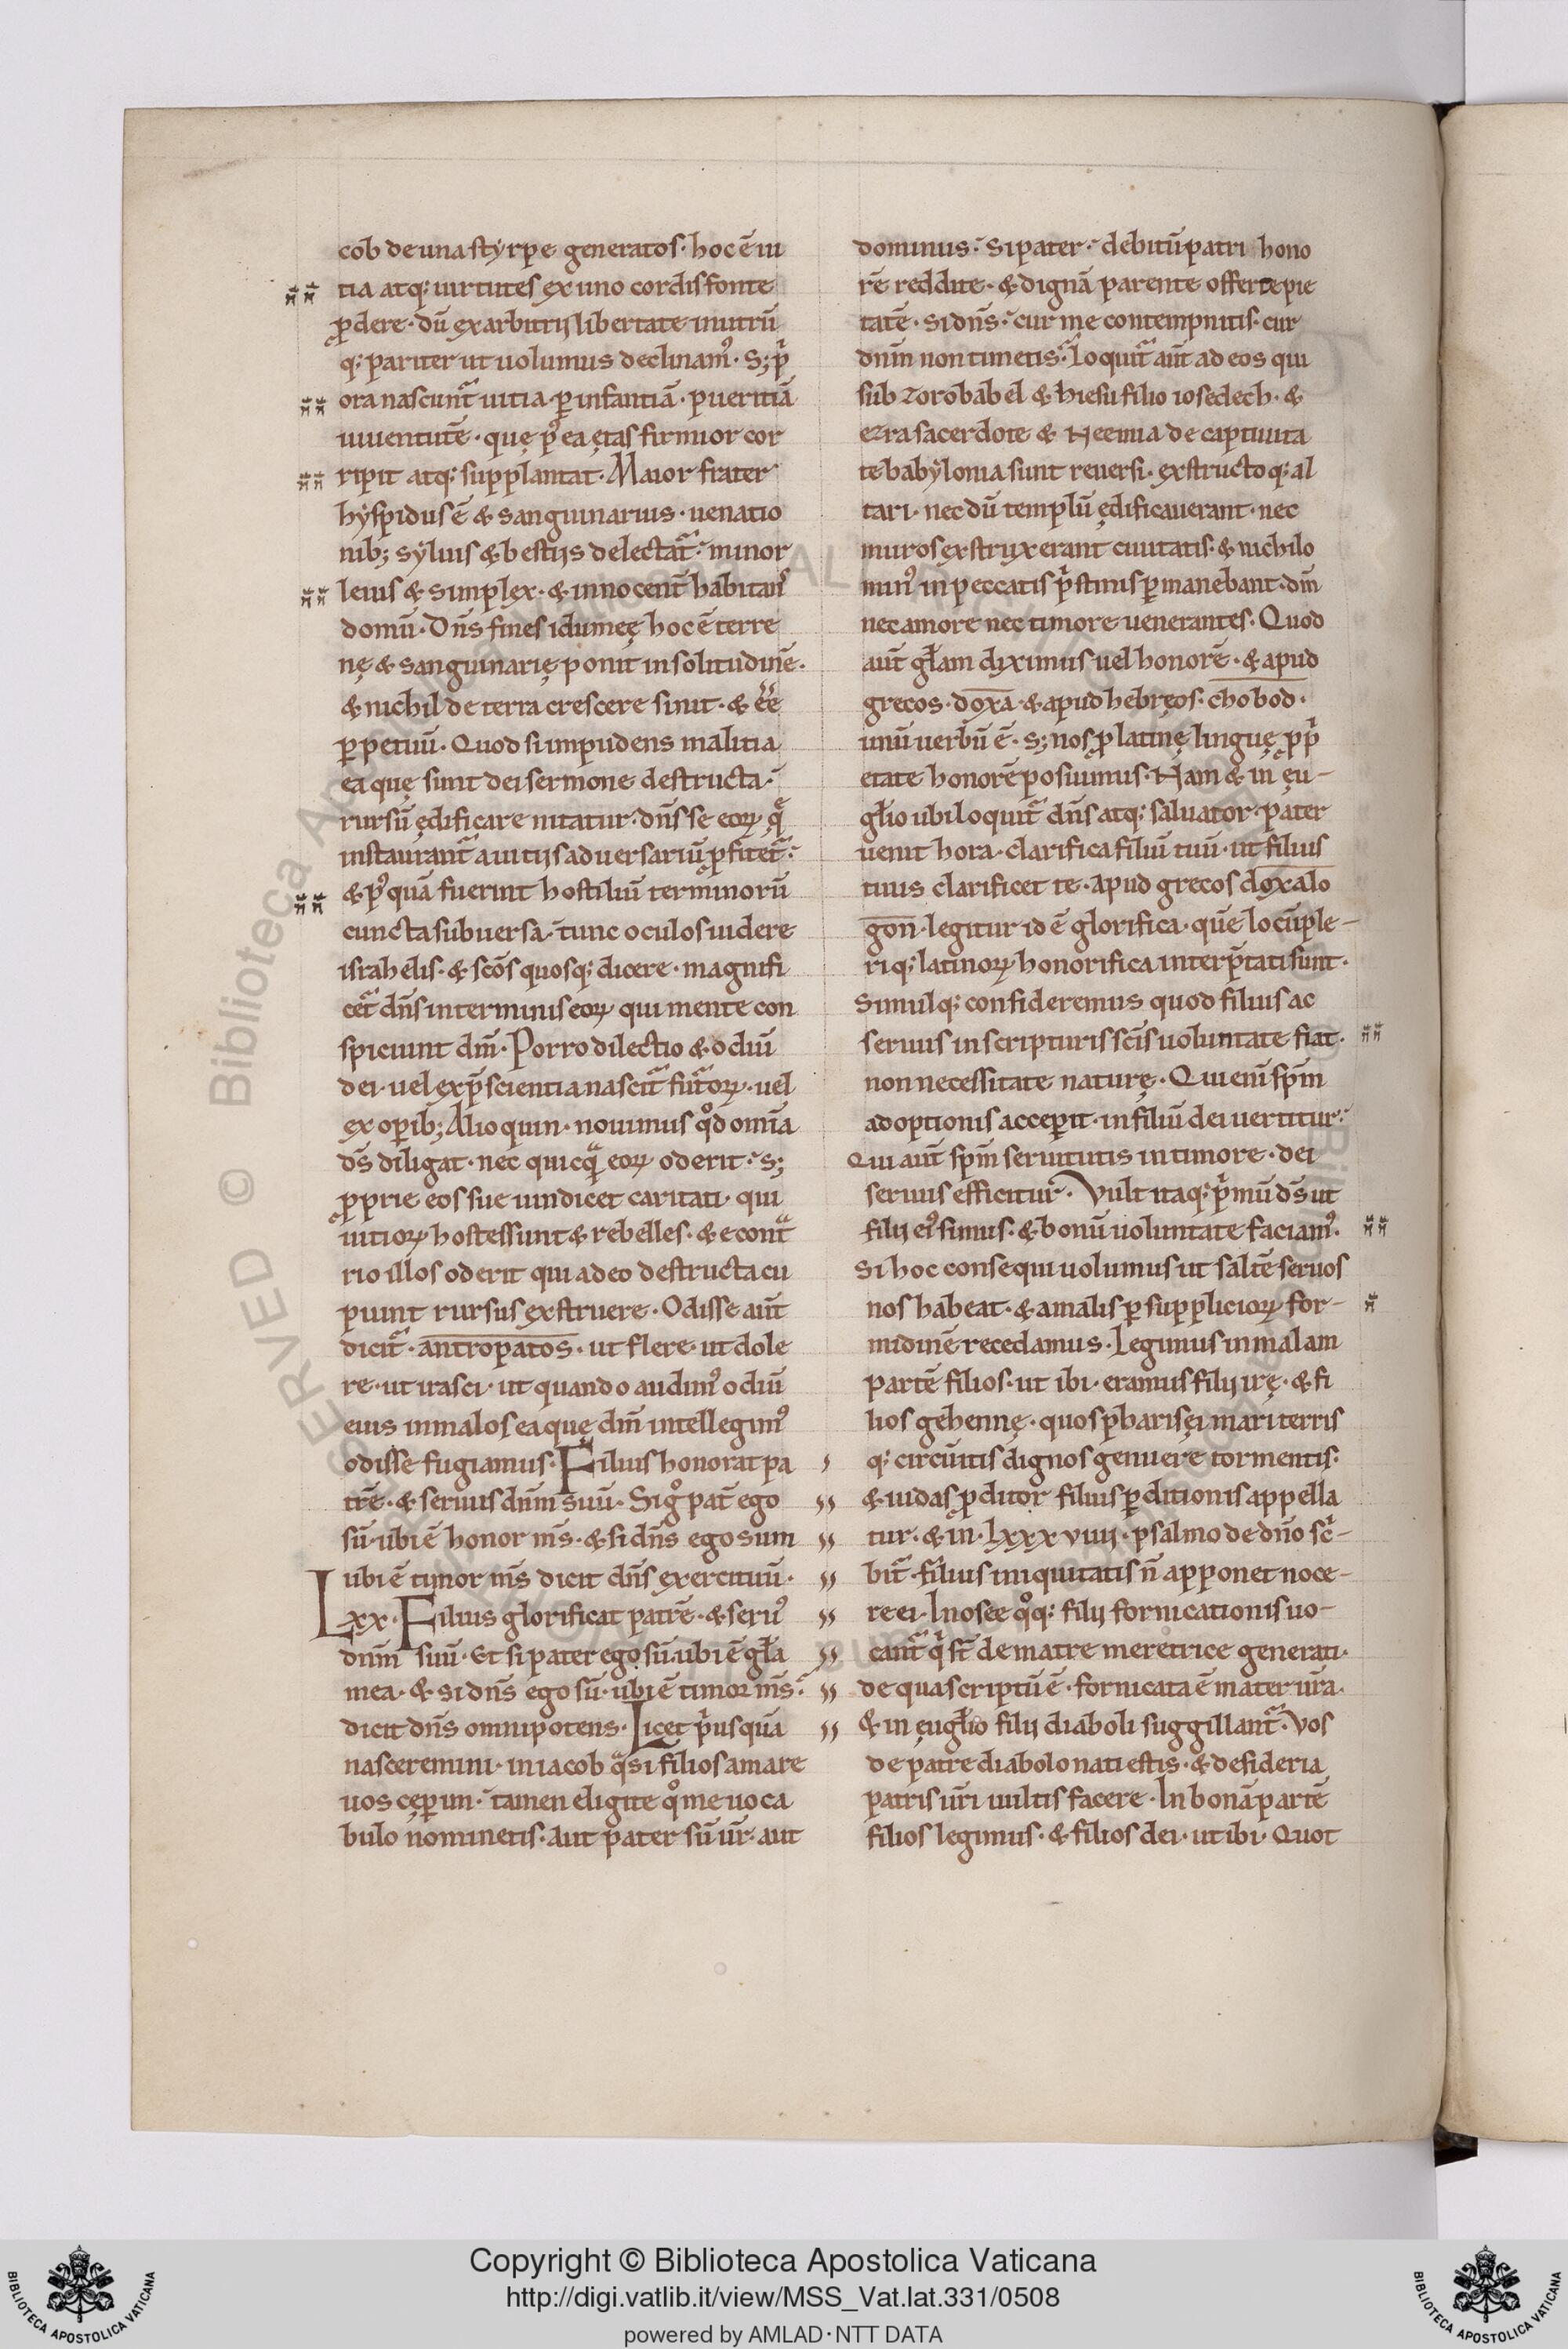 cob de una styrpe generatos· hoc ē ui
tia atq; uirtutes ex uno cordis fonte
ꝓdere· dū ex arbitrij libertate in utrū
q; pariter ut uolumus declinam᾽· S; pⁱ
ora nascunt᷑ uitia· ꝑ infantiā· pueritiā
iuuentutē· quę pꝰ ea ętas firmior cor
ripit atq; supplantat· Maior frater
hyspidus ē & sanguinarius· uenatio
nib; syluis & bestijs delectat᷑· minor
leuis & simplex· & innocent̄ habitans
domū· Dn̄s fines idumeę hoc ē terre
nę & sanguinarię ponit in solitudinē·
& nichil de terra crescere sinit· & ēē
ꝑpetuū· Quod si impudens malitia
ea quę sunt dei sermone destructa·
rursū ędificare nitatur· dn̄s se eoꝝ qͣ
instaurant᷑ a uitijs aduersariū ꝓfitet᷑·
& pꝰquā fuerint hostiliū terminorū
cuncta subuersa· tunc oculos uidere
israhelis· & sc̄os quosq; dicere· magnifi
cet᷑ dn̄s in terminis eoꝝ qui mente con
spiciunt dm̄· Porro dilectio & odiū
dei· uel ex p̄scientia nascit᷑ fut᷑oꝝ· uel
ex oꝑib; Alioquin· nouimus qͦd omīa
dⁱs diligat· nec quicqͣ eoꝝ oderit· S;
ꝓprie eos sue uindicet caritati· qui
uitioꝝ hostes sunt & rebelles· & econtͣ
rio illos oderit qui a deo destructa cu
piunt rursus exstruere· Odisse aūt
dicit᷑· antropatos· ut flere· ut dole
re· ut irasci· ut quando audim᾽ odiū
eius in malos ea quę dm̄ intellegim᾽
odisse fugiamus· Filius honorat pa
trē· & seruus dnm̄ suū· Si gͦ pat̄ ego
sū· ubi ē honor m̄s· & si dn̄s ego sum
ubi ē timor m̄s dicit dn̄s exercituū·
Lxx· Filius glorificat patrē· & seru᾽
dnm̄ suū· Et si pater ego sū· ubi ē gła
mea· & si dn̄s ego sū· ubi ē timor m̄s·
dicit dn̄s omnipotens· Licet pⁱusquā
nasceremini· in iacob qͣsi filios amare
uos cęꝑim· tamen eligite qͦ me uoca
bulo nominetis· Aut pater sū ur̄· aut
dominus· Si pater· debitū patri hono
rē reddite· & dignā parente offerte pie
tatē· Si dn̄s· cur me contempnitis· cur
dnm̄ non timetis· Loquit᷑ aūt ad eos qui
sub zorobabel & hiesu filio iosedech· &
ezra sacerdote & Neemia de captiuita
te babylonia sunt reuersi· exstructoq; al
tari· nec dū templū ędificauerant· nec
muros exstruxerant ciuitatis· & nichilo
min᾽ in peccatis pⁱstinis ꝑmanebant· dm̄
nec amore nec timore uenerantes· Quod
aūt głam diximus uel honorē· & apud
grecos· doxa· & apud hebręos· chobod·
unū uerbū ē· S; nos ꝓ latinę linguę ꝓpⁱ
etate honorē posuimus· Nam & in ęu-
głio ubi loquit᷑ dn̄s atq; saluator· pater
uenit hora· clarifica filiū tuū· ut filius
tuus clarificet te· Apud grecos doxalo
gon· legitur id ē glorifica· quē locū ple-
riq; latinoꝝ honorifica interp̄tati sunt·
Simulq; consideremus quod filius ac
seruus in scripturis sc̄is uoluntate fiat·
non necessitate naturę· Qui eni spm̄
adoptionis acceꝑit· in filiū dei uertitur·
Qui aūt spm̄ seruitutis in timore· dei
seruus efficitur· Vult itaq; pⁱmū ds̄ ut
filij ei᾽ simus· & bonū uoluntate faciam᾽·
Si hoc consequi uolumus ut saltē seruos
nos habeat· & a malis ꝑ suppliciorꝝ for-
midinē recedamus· Legimus in malam
partē filios· ut ibi· eramus filij irę· & fi
lios gehennę· quos ꝓ barisęi mari terris
q; circūitis dignos genuere tormentis·
& iudas ꝓditor filius ꝑditionis appella
tur· & in· lxxxviij· psalmo de dn̄o scⁱ-
bit᷑· filius iniquitatis n̄ apponet noce-
re ei· In osee qͦq; filij fornicationis uo-
cant᷑ qⁱ st̄ de matre meretrice generati·
de qua scriptū ē· fornicata ē mater ur̄a·
& in ęugłio filij diaboli suggillant᷑· Vos
de patre diabolo nati estis· & desideria
patris ur̄i uultis facere· In bonā partē
filios legimus· & filios dei· ut ibi· Quot
Copyright © Biblioteca Apostolica Vaticana
http://digi.vatlib.it/view/MSS_Vat.lat.331/0508
powered by AMLAD·NTT DATA
BIBLIOTECA APOSTOLICA VATICANA
BIBLIOTECA APOSTOLICA VATICANA